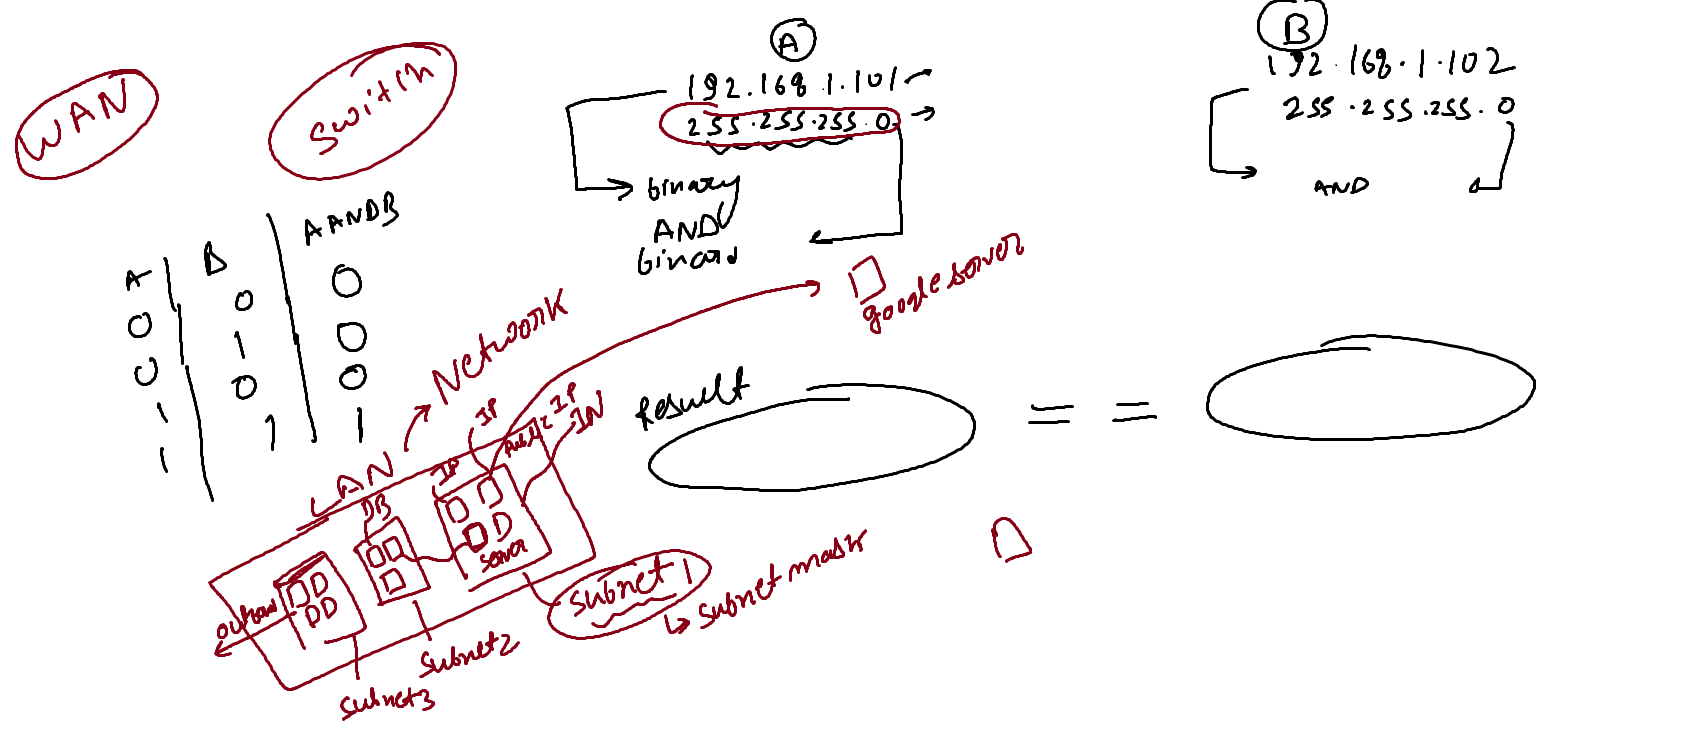 WAN
switch
A
192.168.1.101
255.255.255.0
binary
AND
binary
B
192.168.1.102
255.255.255.0
AND
A B A AND B
0 0 0
0 1 0
1 0 0
1 1 1
google server
Network
Result
= =
LAN
DB
IP
IP
Public IP
IN
server
outbound
subnet 1
subnet mask
subnet2
subnet3